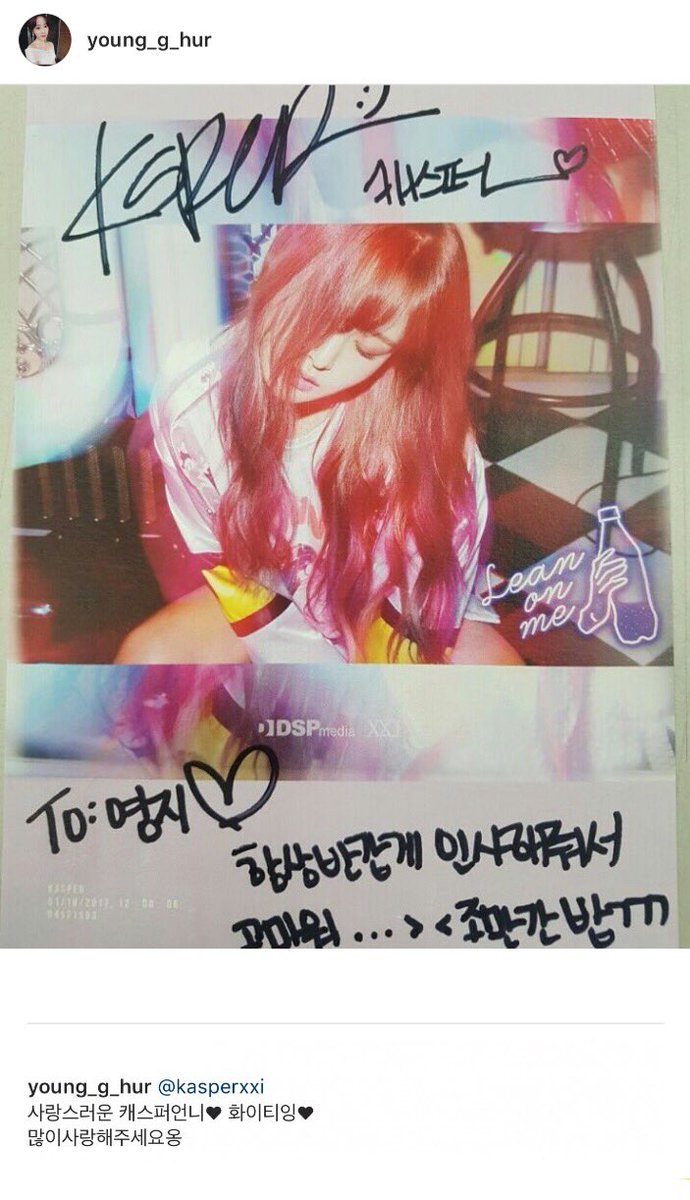 young_g_hur
KSPER :)
캐스퍼 ♡
Lean
on
me
DSPmedia XXI
To: 영지♡
항상반갑게 인사해줘서
고마워 ...> < 조만간 밥ㅠㅠ
KASPER
01/18/2017. 12 : 00 : 00
young_g_hur @kasperxxi
사랑스러운 캐스퍼언니♥ 화이티잉♥
많이사랑해주세요옹